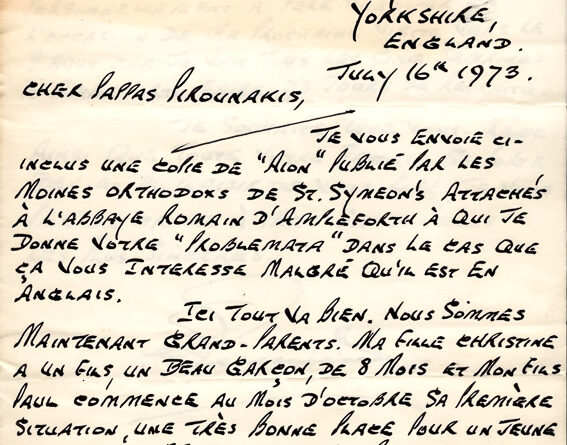 YORKSHIRE,
ENGLAND.
JULY 16th 1973.
CHER PAPPAS PIROUNAKIS,
JE VOUS ENVOIE CI-
INCLUS UNE COPIE DE "AION" PUBLIÉ PAR LES
MOINES ORTHODOXS DE ST. SYMEON'S ATTACHÉS
À L'ABBAYE ROMAIN D'AMPLEFORTH À QUI JE
DONNE VOTRE "PROBLEMATA" DANS LE CAS QUE
ÇA VOUS INTERESSE MALGRÉ QU'IL EST EN
ANGLAIS.
ICI TOUT VA BIEN. NOUS SOMMES
MAINTENANT GRAND-PARENTS. MA FILLE CHRISTINE
A UN FILS, UN BEAU GARÇON, DE 8 MOIS ET MON FILS
PAUL COMMENCE AU MOIS D'OCTOBRE SA PREMIÈRE
SITUATION, UNE TRÈS BONNE PLACE POUR UN JEUNE